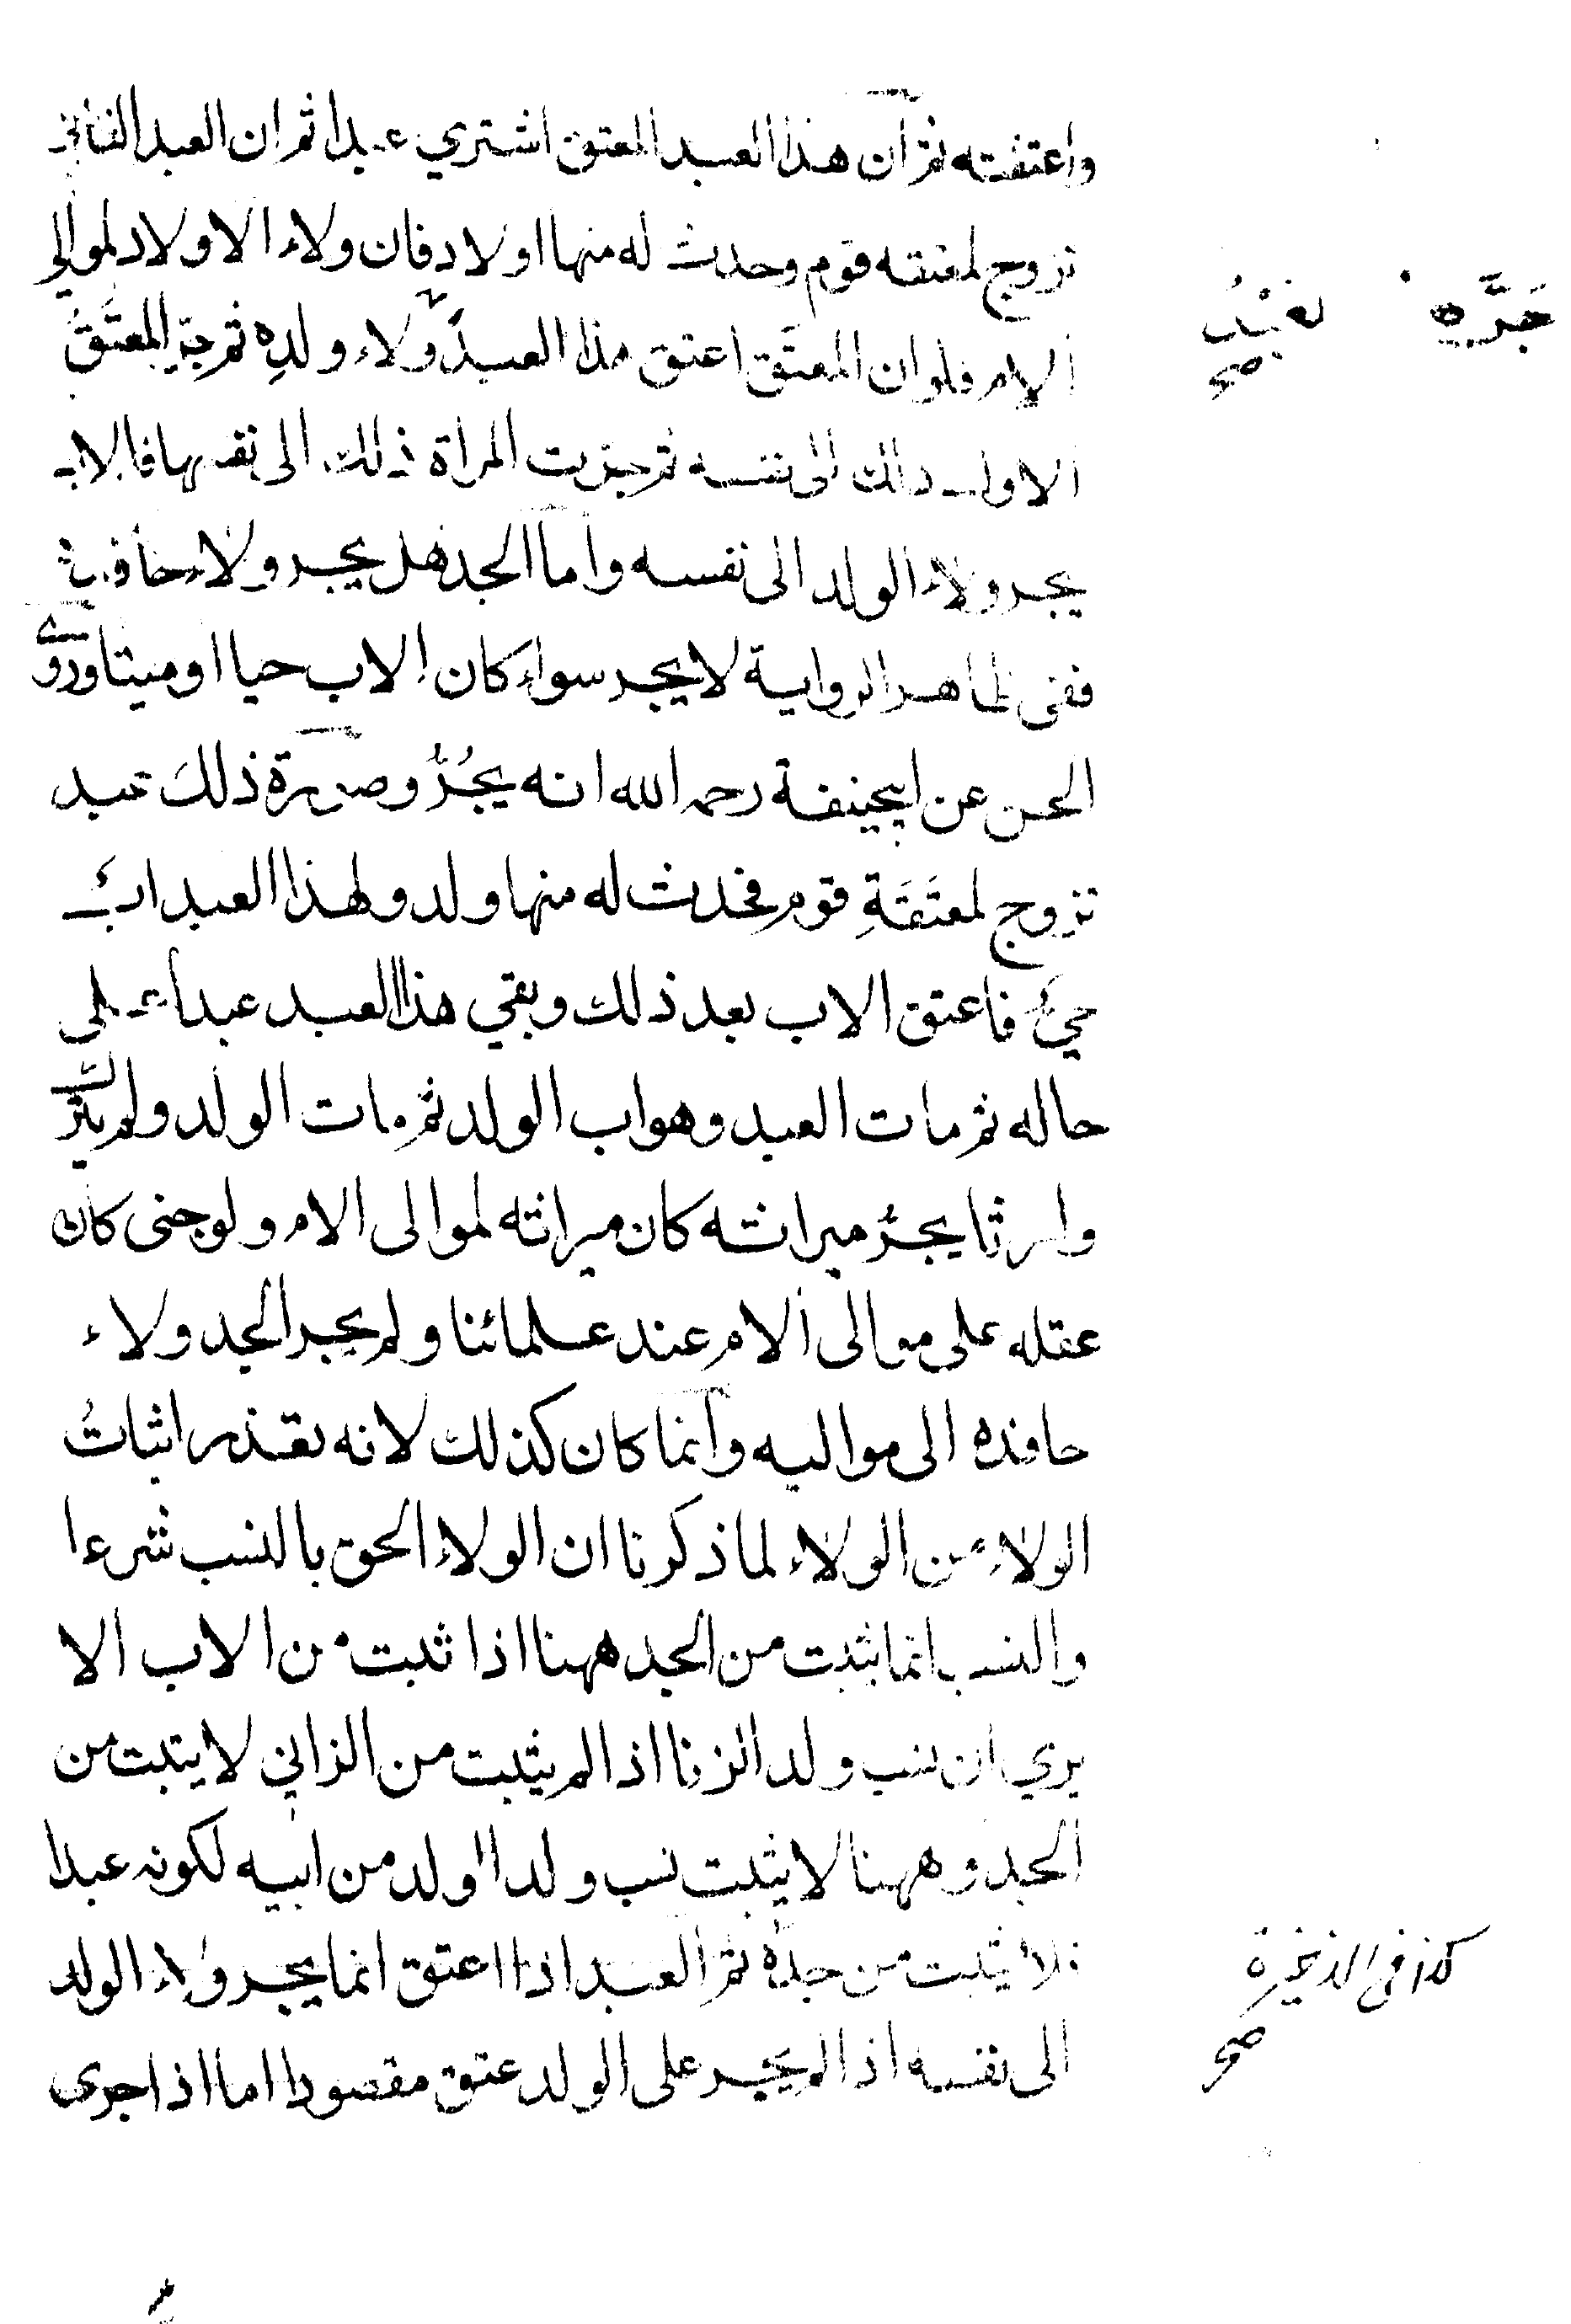 واعتقته ثم ان هذا العبد المعتق اشتري عبدا ثم ان العبد الثاني
تزوج لمعتقه قوم وحدث له منها اولاد فان ولاء الاولاد لموالي
الام فلو ان المعتق اعتق هذا العبد ولاء ولده ثم جرّ المعتَقُ
الاول ذلك الى نفسه ثم جرت المراة ذلك الى نفسها فالاب
يجر ولاء الولد الى نفسه واما الجد هل يجر ولاء حافده
ففى ظاهر الرواية لا يجر سواء كان الاب حيا او ميتا وروى
الحسن عن ابيحنيفة رحمه الله انه يجُرُّ وصورة ذلك عبد
تزوج لمعتَقَةِ قوم فحدث له منها ولد ولهذا العبد ابٌ
حيٌ فاعتق الاب بعد ذلك وبقي هذا العبد عبدا على
حاله ثم مات العبد وهو اب الولد ثم مات الولد ولم يترك
وارثا يجرُّ ميراثه كان ميراثه لموالى الام ولو جنى كان
عقله على موالى الام عند علمائنا ولم يجر الجد ولاء
حافده الى مواليه وانما كان كذلك لانه تعذر اثباتُ
الولاء من الولاء لما ذكرنا ان الولاء الحق بالنسب شرعا
والنسب انما يثبت من الجد ههنا اذا ثبت من الاب الا
يري ان نسب ولد الزنا اذا لم يثبت من الزاني لا يثبت من
الجد وههنا لا يثبت نسب ولد الولد من ابيه لكونه عبدا
فلا يثبت من جدّه ثم العبد اذا اعتق انما يجر ولاء الولد
الى نفسه اذا لم يجر على الولد عتق مقصودا اما اذا جرى
جَرَّه
صح
كذا في الذخيرة
صح